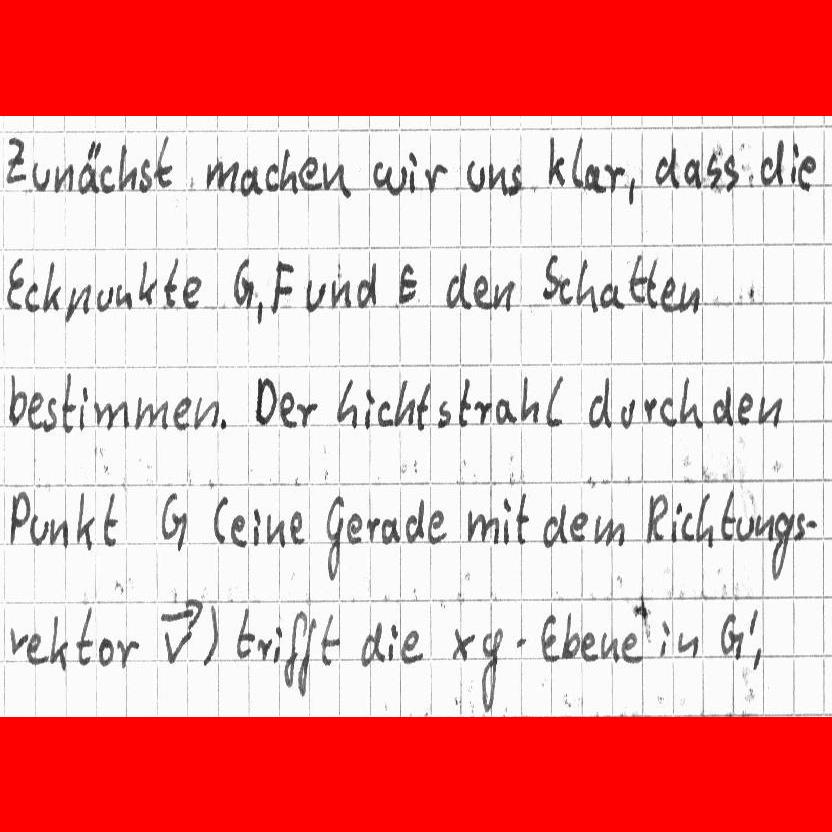 Zunächst machen wir uns klar, dass die
Eckpunkte G, F und E den Schatten
bestimmen. Der Lichtstrahl durch den
Punkt G (eine Gerade mit dem Richtungs-
vektor v⃗) trifft die xy-Ebene in G',